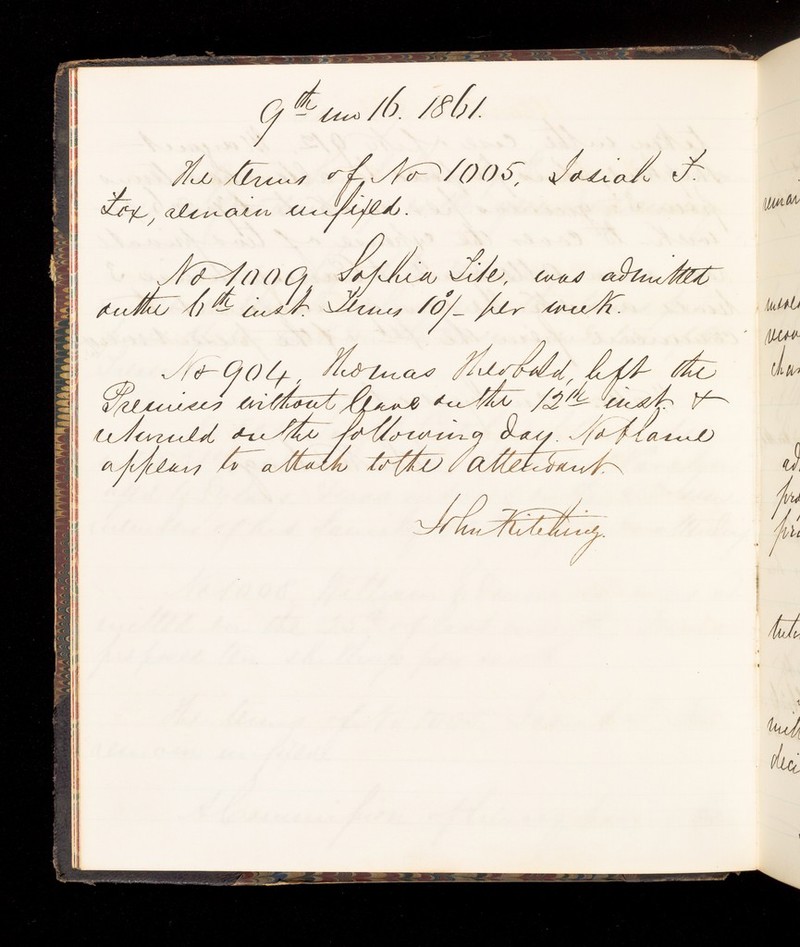 9th mo 16. 1861.
The terms of No 1005, Josiah F.
Fox, remain unfixed.
No 1009, Sophia Fite, was admitted
on the 6th inst. Terms 10/- per week.
No 904, Thomas Theobald, left the
Premises without leave on the 12th inst. &
returned on the following day. No blame
appears to attach to the attendant.
John Kitching.